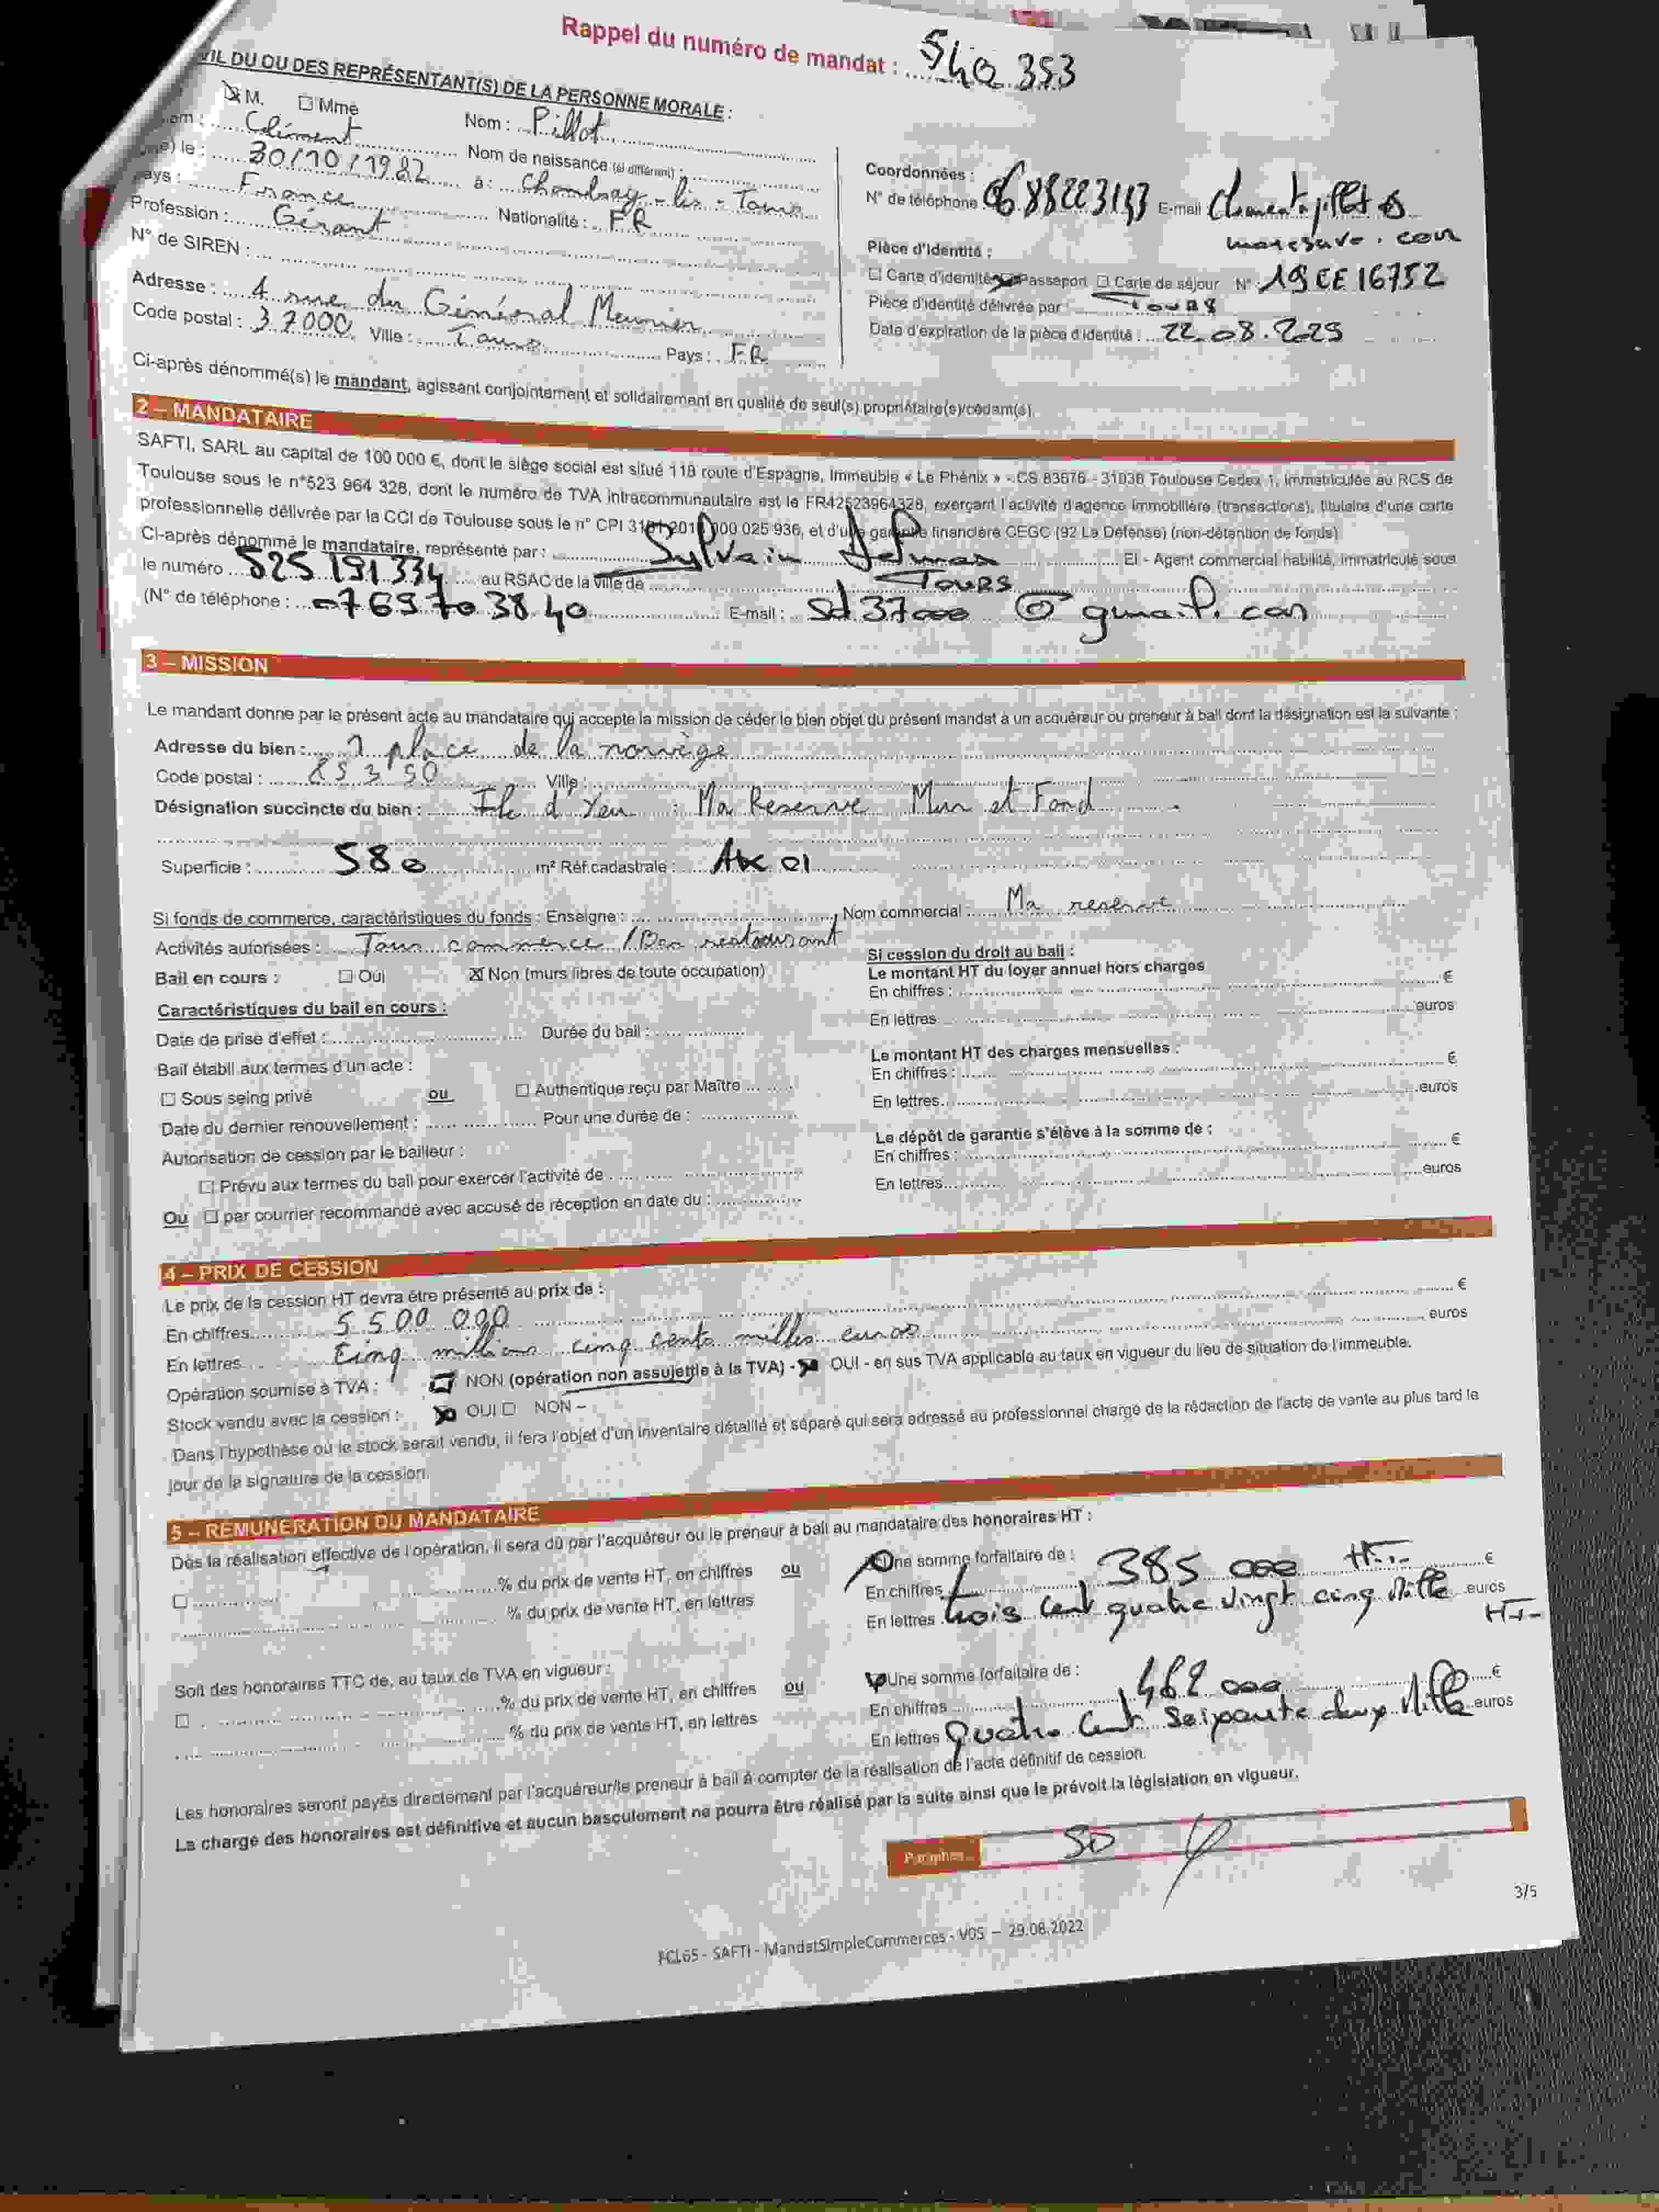 Rappel du numéro de mandat : 540 353
VIL DU OU DES REPRÉSENTANT(S) DE LA PERSONNE MORALE :
☒ M. ☐ Mme
Nom : Pillot
om : Clément
Nom de naissance (si différent) :
le : 30/10/1982 à : Chambray-lis-Tours
ays : France Nationalité : FR
Profession : Gérant
N° de SIREN :
Adresse : 4 rue du Général Meunier
Code postal : 37000 Ville : Tours Pays : FR
Coordonnées :
N° de téléphone 0688223143 E-mail
Pièce d'identité :
☐ Carte d'identité ☒ Passeport ☐ Carte de séjour N° 19CE16752
Pièce d'identité délivrée par TOURS
Date d'expiration de la pièce d'identité : 22.08.2029
Ci-après dénommé(s) le mandant, agissant conjointement et solidairement en qualité de seul(s) propriétaire(s)/cédant(s).
2 – MANDATAIRE
SAFTI, SARL au capital de 100 000 €, dont le siège social est situé 118 route d'Espagne, Immeuble « Le Phénix » - CS 83676 - 31036 Toulouse Cedex 1, immatriculée au RCS de
Toulouse sous le n°523 964 328, dont le numéro de TVA intracommunautaire est le FR42523964328, exerçant l'activité d'agence immobilière (transactions), titulaire d'une carte
professionnelle délivrée par la CCI de Toulouse sous le n° CPI 3101 2018 000 025 936, et d'une garantie financière CEGC (92 La Défense) (non-détention de fonds)
Ci-après dénommé le mandataire, représenté par : Sylvain Delmas EI - Agent commercial habilité, immatriculé sous
le numéro 525 191 334 au RSAC de la ville de TOURS
(N° de téléphone : 0769 70 38 40 E-mail : sd37000 @ gmail.com
3 – MISSION
Le mandant donne par le présent acte au mandataire qui accepte la mission de céder le bien objet du présent mandat à un acquéreur ou preneur à bail dont la désignation est la suivante :
Adresse du bien : 7 place de la norvège
Code postal : 85350 Ville :
Désignation succincte du bien : Ile d'Yeu : Ma Reserve Mur et Fond
Superficie : 580 m² Réf.cadastrale :
Si fonds de commerce, caractéristiques du fonds : Enseigne : Nom commercial : Ma reserve
Activités autorisées : Tous commerce / Bar restaurant
Bail en cours : ☐ Oui ☒ Non (murs libres de toute occupation)
Caractéristiques du bail en cours :
Date de prise d'effet : Durée du bail :
Bail établi aux termes d'un acte :
☐ Sous seing privé ou ☐ Authentique reçu par Maître
Date du dernier renouvellement : Pour une durée de :
Autorisation de cession par le bailleur :
☐ Prévu aux termes du bail pour exercer l'activité de
Ou ☐ par courrier recommandé avec accusé de réception en date du :
Si cession du droit au bail :
Le montant HT du loyer annuel hors charges
En chiffres : €
En lettres euros
Le montant HT des charges mensuelles :
En chiffres : €
En lettres euros
Le dépôt de garantie s'élève à la somme de :
En chiffres : €
En lettres euros
4 – PRIX DE CESSION
Le prix de la cession HT devra être présenté au prix de :
En chiffres 5 500 000 €
En lettres Cinq millions cinq cents milles euros euros
Opération soumise à TVA : ☐ NON (opération non assujettie à la TVA) - ☒ OUI - en sus TVA applicable au taux en vigueur du lieu de situation de l'immeuble.
Stock vendu avec la cession : ☒ OUI ☐ NON –
Dans l'hypothèse où le stock serait vendu, il fera l'objet d'un inventaire détaillé et séparé qui sera adressé au professionnel chargé de la rédaction de l'acte de vente au plus tard le
jour de la signature de la cession.
5 – REMUNERATION DU MANDATAIRE
Dès la réalisation effective de l'opération, il sera dû par l'acquéreur ou le preneur à bail au mandataire des honoraires HT :
☐ % du prix de vente HT, en chiffres ou
% du prix de vente HT, en lettres
Une somme forfaitaire de :
En chiffres 385 000 HT €
En lettres trois cent quatre vingt cinq Mille euros
HT
Soit des honoraires TTC de, au taux de TVA en vigueur :
☐ % du prix de vente HT, en chiffres ou
% du prix de vente HT, en lettres
Une somme forfaitaire de :
En chiffres 462 000 €
En lettres Quatre Cent Soixante deux Mille euros
Les honoraires seront payés directement par l'acquéreur/le preneur à bail à compter de la réalisation de l'acte définitif de cession.
La charge des honoraires est définitive et aucun basculement ne pourra être réalisé par la suite ainsi que le prévoit la législation en vigueur.
Paraphes SD
3/5
FCL65 - SAFTI - MandatSimpleCommerces - V05 – 29.08.2022